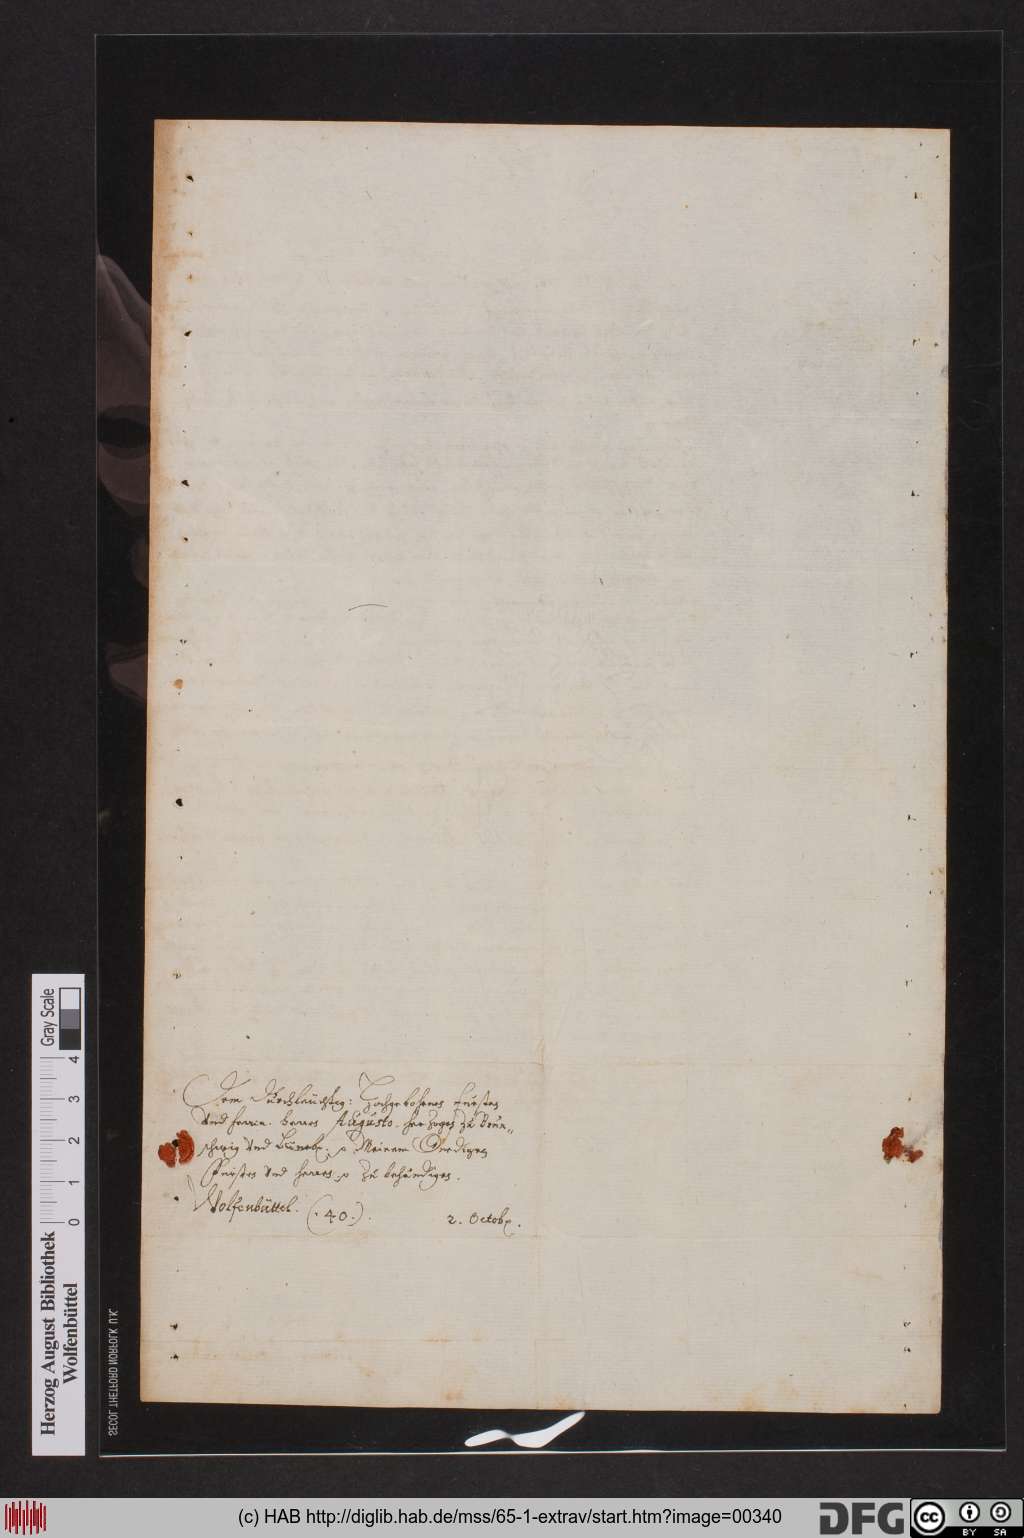 Dem Durchleuchtig: Hochgebohrnen Fursten
Vnd Herren. Herren Augusto. Hertzogen zu Braun„
schweig Vnd Lüneb: Meinem Gnedigen
Fürsten Vnd Herren zu behändigen.
Wolfenbüttel. (·40·).
2. Octob.
Gray Scale
0 1 2 3 4
Herzog August Bibliothek
Wolfenbüttel
SECOL THETFORD NORFOLK U.K.
(c) HAB http://diglib.hab.de/mss/65-1-extrav/start.htm?image=00340
DFG
cc BY SA